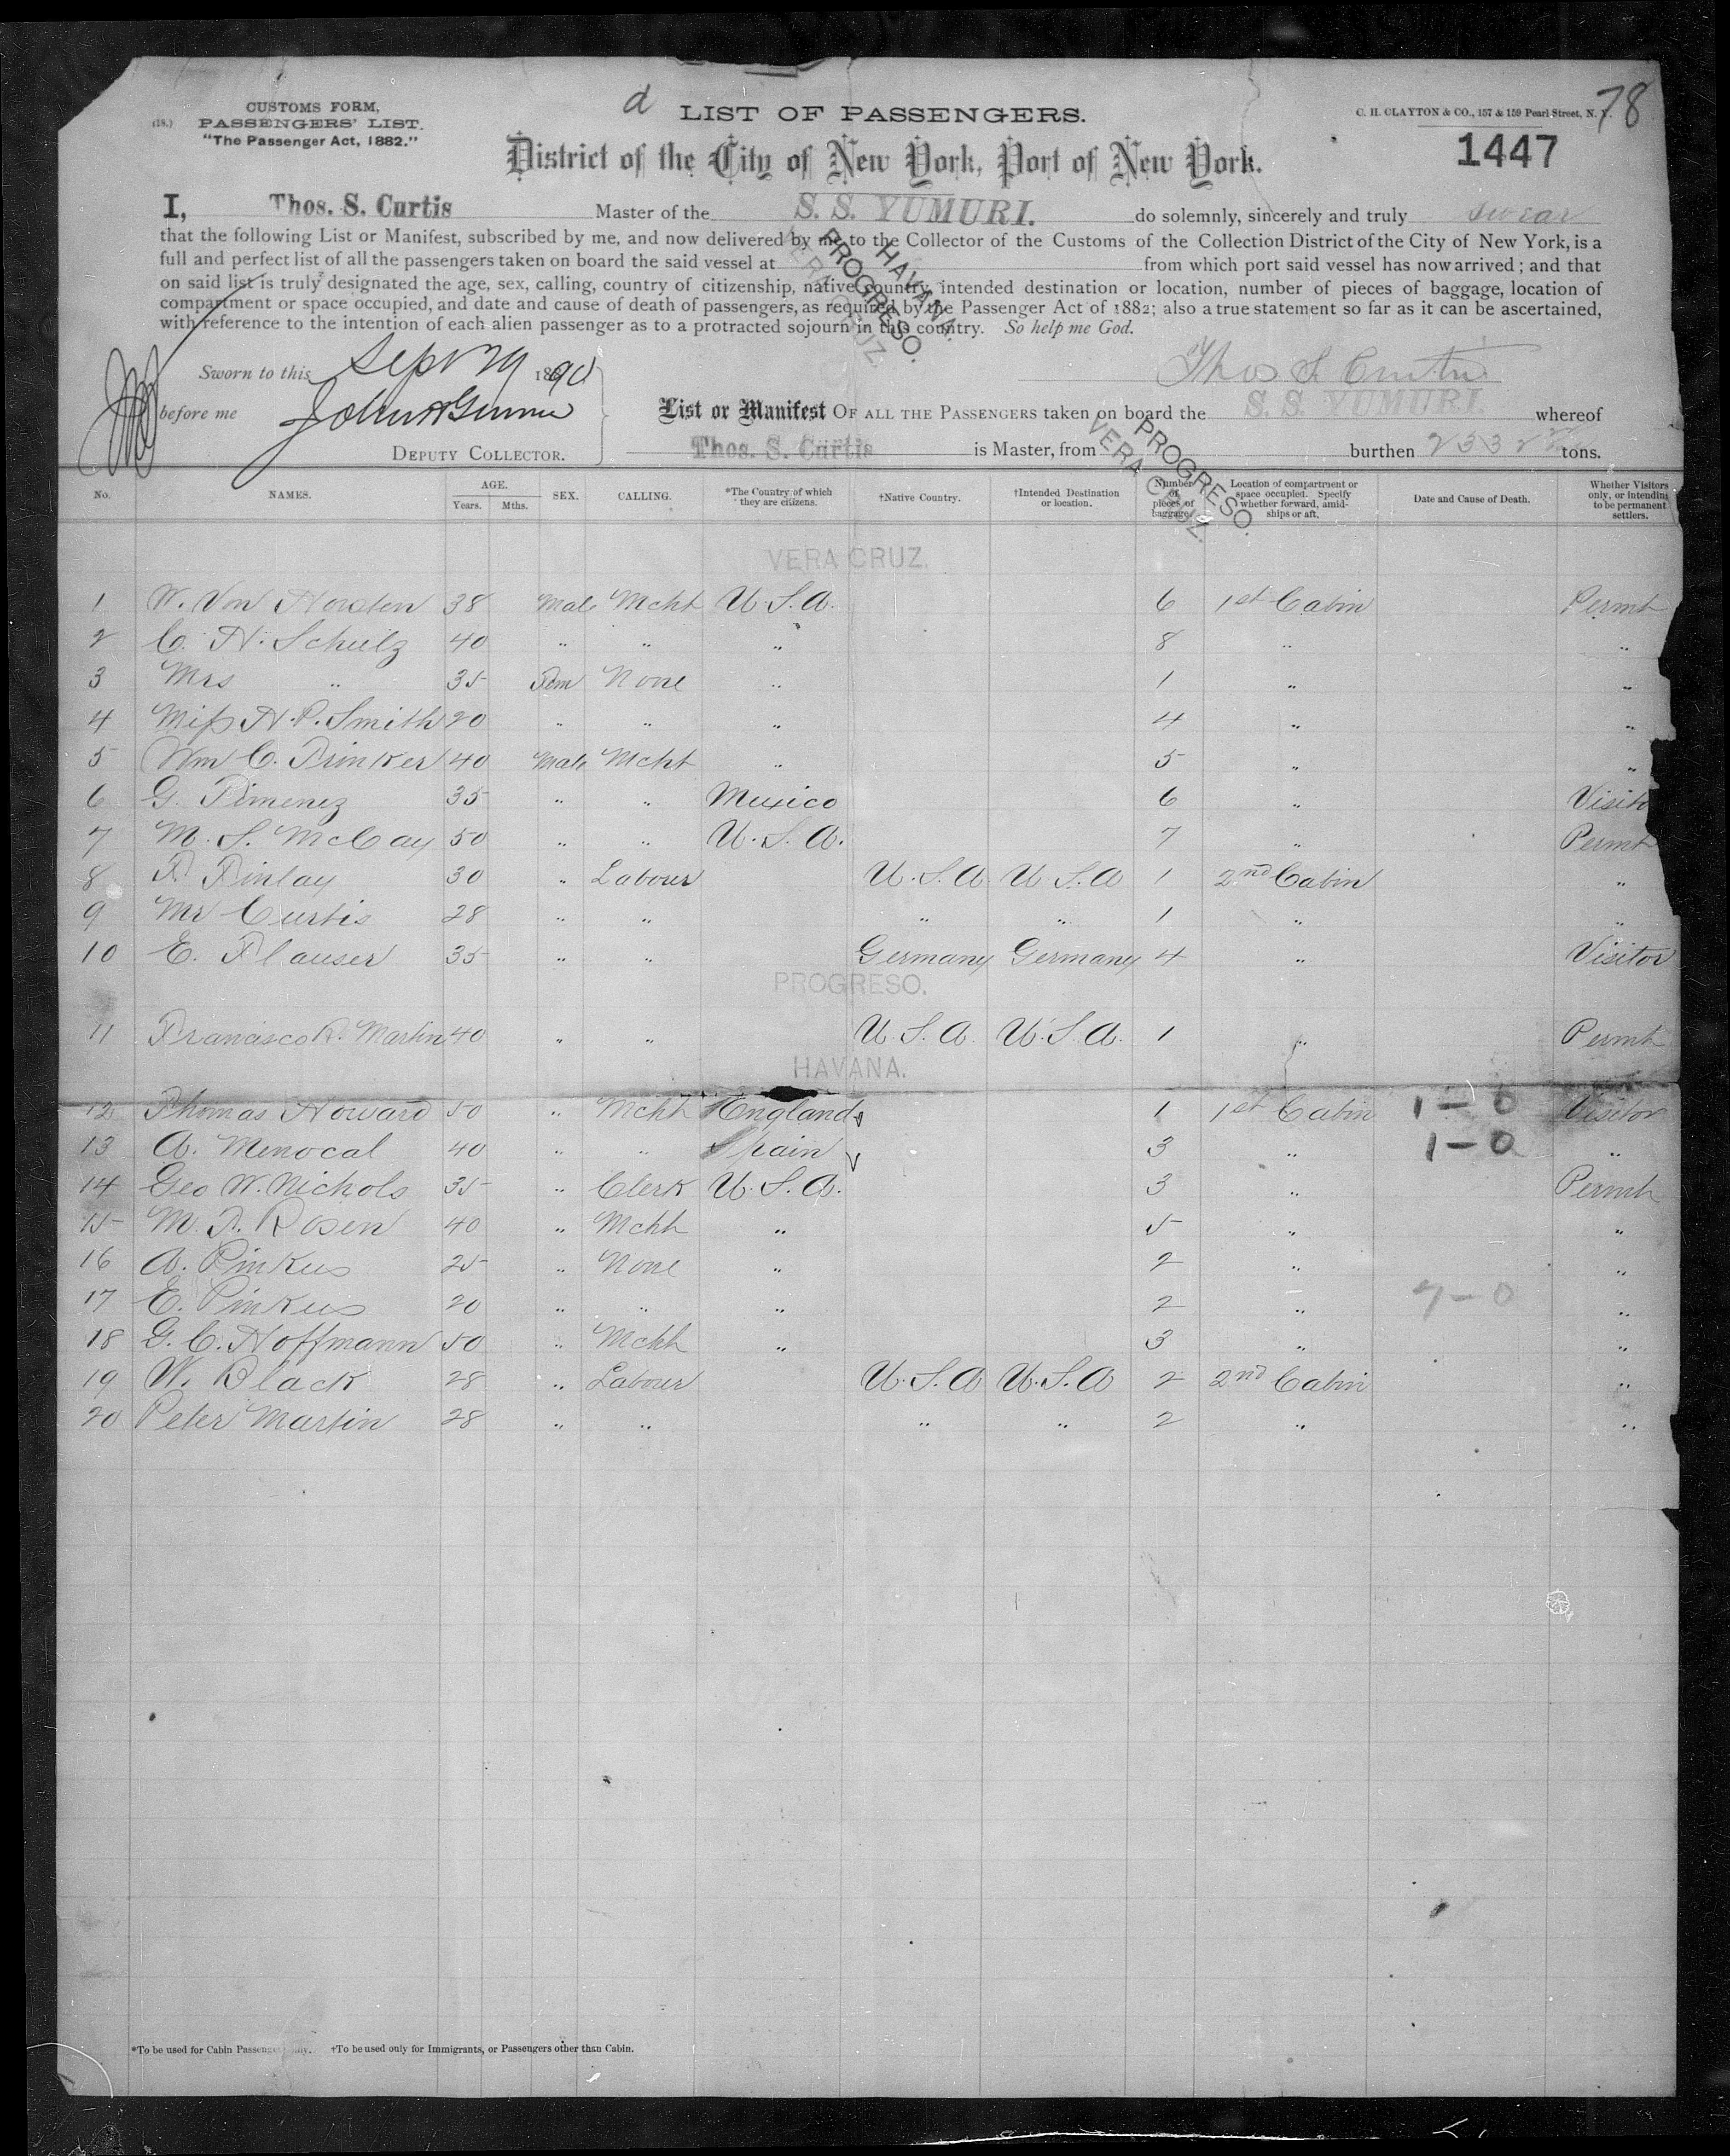 CUSTOMS FORM,
(18.) PASSENGERS' LIST.
"The Passenger Act, 1882."
d LIST OF PASSENGERS.
C. H. CLAYTON & CO., 157 & 159 Pearl Street, N. Y.
78
1447
District of the City of New York, Port of New York.
I, Thos. S. Curtis Master of the S. S. YUMURI. do solemnly, sincerely and truly swear
that the following List or Manifest, subscribed by me, and now delivered by me to the Collector of the Customs of the Collection District of the City of New York, is a
full and perfect list of all the passengers taken on board the said vessel at VERA CRUZ. PROGRESO. HAVANA. from which port said vessel has now arrived; and that
on said list is truly designated the age, sex, calling, country of citizenship, native country, intended destination or location, number of pieces of baggage, location of
compartment or space occupied, and date and cause of death of passengers, as required by the Passenger Act of 1882; also a true statement so far as it can be ascertained,
with reference to the intention of each alien passenger as to a protracted sojourn in this country. So help me God.
Sworn to this Sept 29 1890
Thos S. Curtis
before me
List or Manifest OF ALL THE PASSENGERS taken on board the S. S. YUMURI whereof
DEPUTY COLLECTOR.
Thos. S. Curtis is Master, from VERA CRUZ. PROGRESO. burthen 2332 tons.
No. NAMES. AGE. Years. Mths. SEX. CALLING. *The Country of which they are citizens. †Native Country. †Intended Destination or location. Number of pieces of baggage. Location of compartment or space occupied. Specify whether forward, amidships or aft. Date and Cause of Death. Whether Visitors only, or intending to be permanent settlers.
VERA CRUZ.
1 W. Von 38 Male Mcht U.S.A. 6 1st Cabin Permt
2 C. H. Schulz 40 " " " 8 " "
3 Mrs " 35 Fem None " 1 " "
4 Miss H. P. Smith 20 " " " 4 " "
5 Wm C. Brinker 40 Male Mcht " 5 " "
6 G. Jimenez 35 " " Mexico 6 " Visit
7 M. S. McCay 50 " " U.S.A. 7 " Permt
8 F. Finlay 30 " Labour U.S.A. U.S.A 1 2nd Cabin "
9 Mr Curtis 28 " " " " 1 " "
10 E. Flauser 35 " " Germany Germany 4 " Visitor
PROGRESO.
11 Francisco R. Martin 40 " " U.S.A. U.S.A. 1 " Permt
HAVANA.
12 Thomas Howard 50 " Mcht England 1 1st Cabin 1-0 Visitor
13 A. Menocal 40 " " Spain 3 " 1-0 "
14 Geo W. Nichols 35 " Clerk U.S.A. 3 " Permt
15 M. F. Rosen 40 " Mcht " 5 " "
16 A. Pinkus 25 " None " 2 " "
17 E. Pinkus 20 " " " 2 " 7-0 "
18 G. C. Hoffmann 50 " Mcht " 3 " "
19 W. Black 28 " Labour U.S.A U.S.A 2 2nd Cabin "
20 Peter Martin 28 " " " " 2 " "
*To be used for Cabin Passengers only. †To be used only for Immigrants, or Passengers other than Cabin.